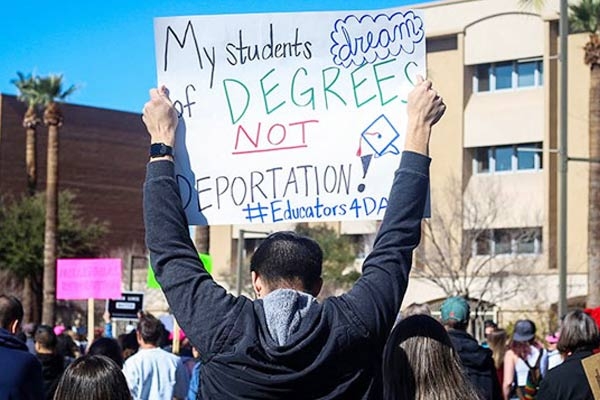 My students dream
of DEGREES
NOT
DEPORTATION!
#Educators4DA